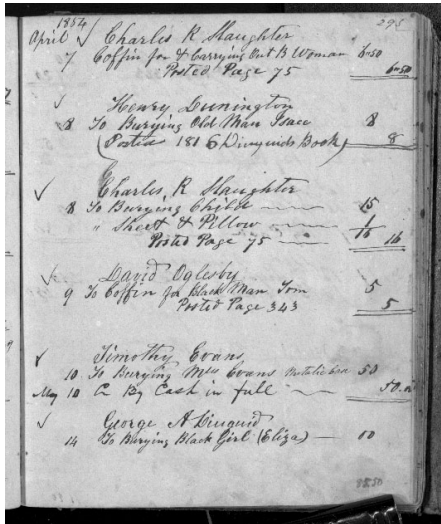 1854 295
April √ Charles R Slaughter
7 Coffin for & Carrying Out B Woman 6.50
Posted Page 75 6.50
√ Henry Dunington
8 To Burying Old Man Isaac 8
(Posted 181 Diuguids Book) 8
√ Charles, R Slaughter
8 To Burying Child 15
" Sheet & Pillow 1
Posted Page 75 16 16
√ David Oglesby
9 To Coffin for Black Man Tom 5
Posted Page 343 5
√ Timothy Evans
10 To Burying Mrs Evans 50
May 10 Cr By Cash in full 50.00
√ George A Diuguid
14 To Burying Black Girl (Eliza)